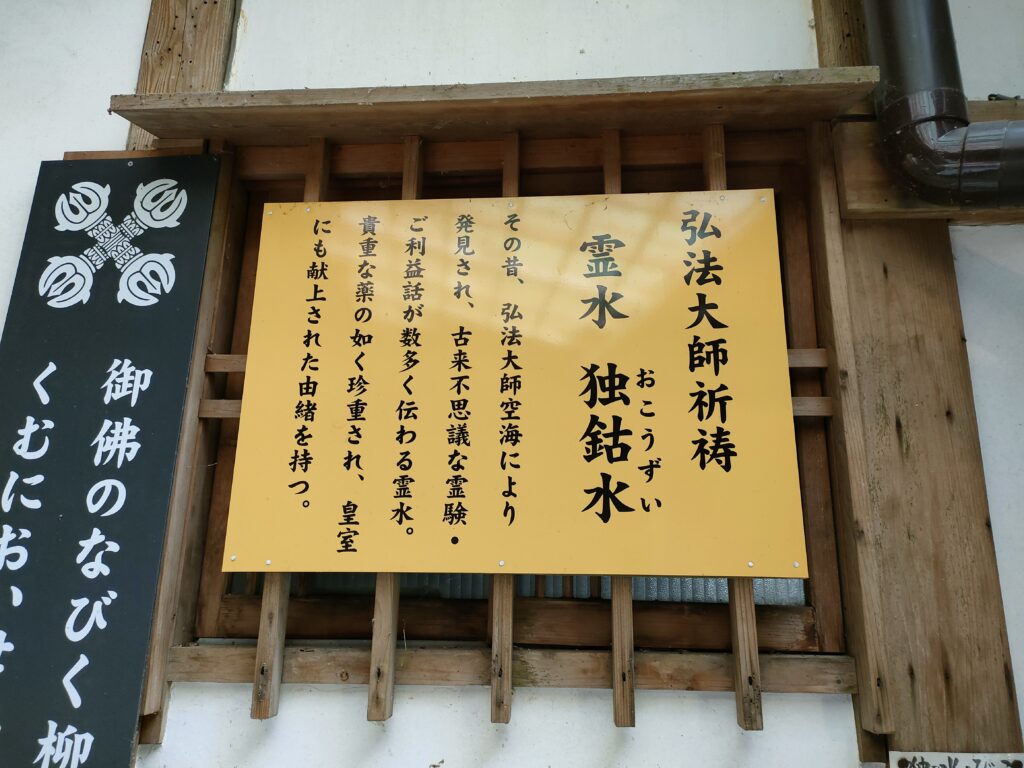 弘法大師祈祷
霊水 独鈷水
おこうずい
その昔、弘法大師空海により
発見され、古来不思議な霊験・
ご利益話が数多く伝わる霊水。
貴重な薬の如く珍重され、皇室
にも献上された由緒を持つ。
御佛のなびく柳
くむにお